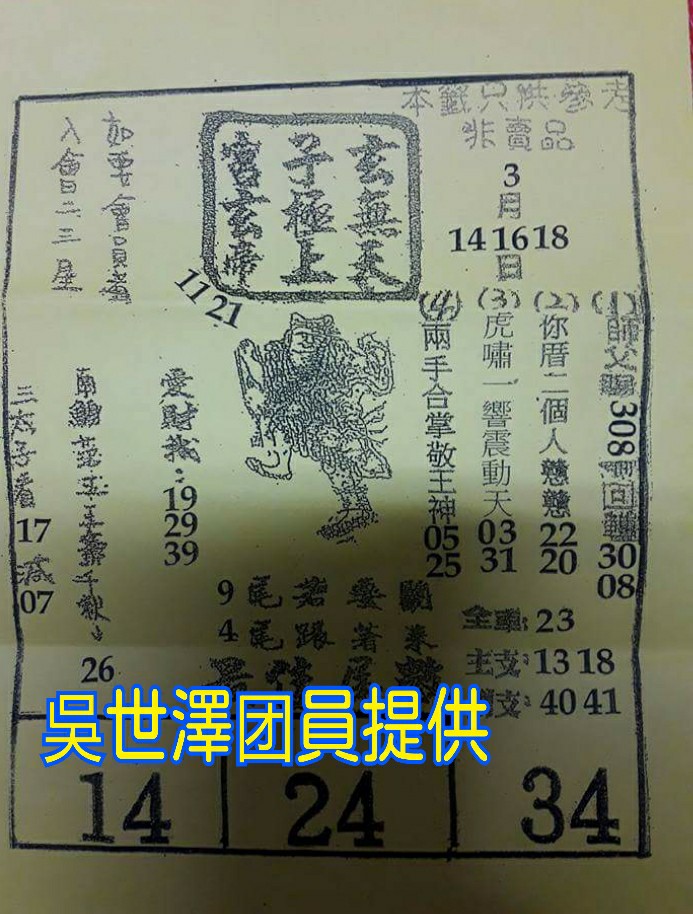 本籤只供參考
非賣品
3
月
14 16 18
日
玄無天
子極上
宮玄帝
如要會員籤
入會二三星
11 21
(1)師父賜308 回轉
30
08
(2)你厝二個人戆戆
22
20
(3)虎嘯一響震動天
03
31
(4)兩手合掌敬王神
05
25
愛財我:
19
29
39
26
三六子看
17
減
07
9尾若要關
4尾跟著來
全車:23
主支:13 18
支:40 41
吳世澤团員提供
14
24
34